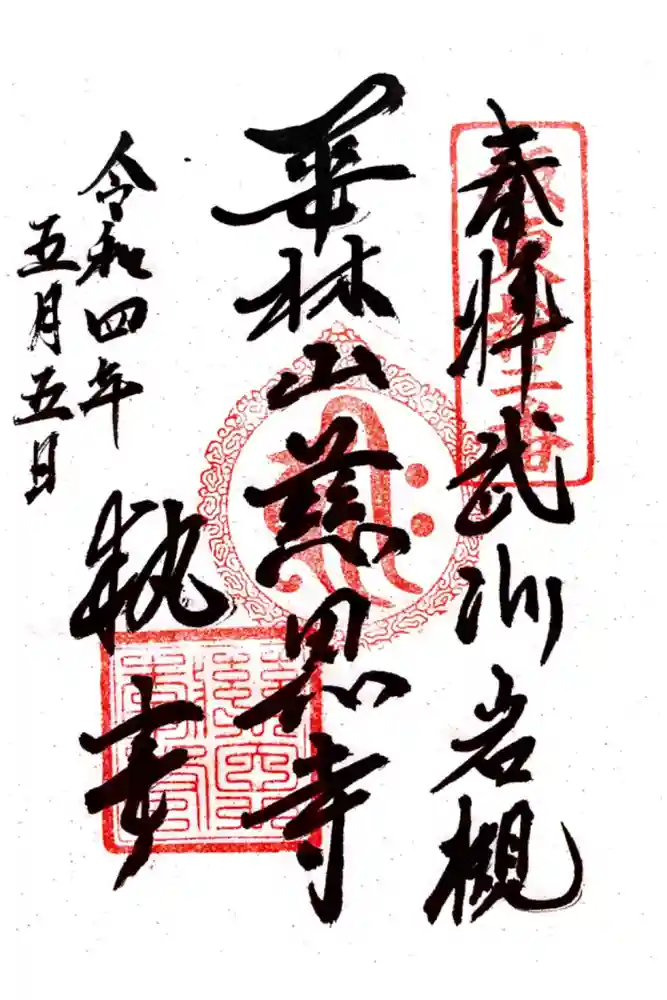 奉拝 武州岩槻
坂東十二番
華林山慈恩寺
執事
令和四年
五月五日